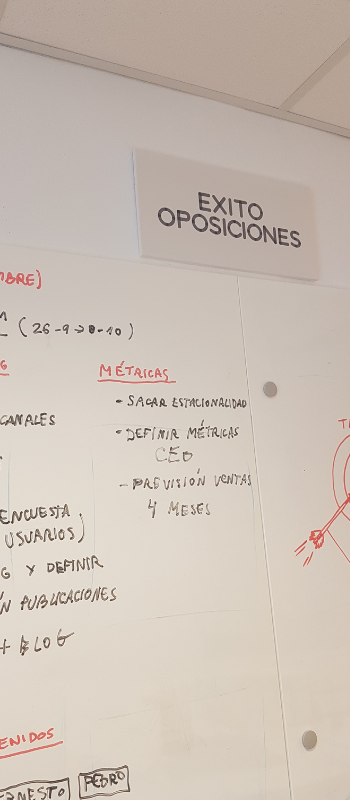 EXITO
OPOSICIONES
MBRE)
(26-9->8-10)
MÉTRICAS
- SACAR ESTACIONALIDAD
CANALES
- DEFINIR MÉTRICAS
CEO
- PREVISIÓN VENTAS
4 MESES
ENCUESTA
USUARIOS)
G Y DEFINIR
N PUBLICACIONES
+ BLOG
ENIDOS
ERNESTO
PEDRO